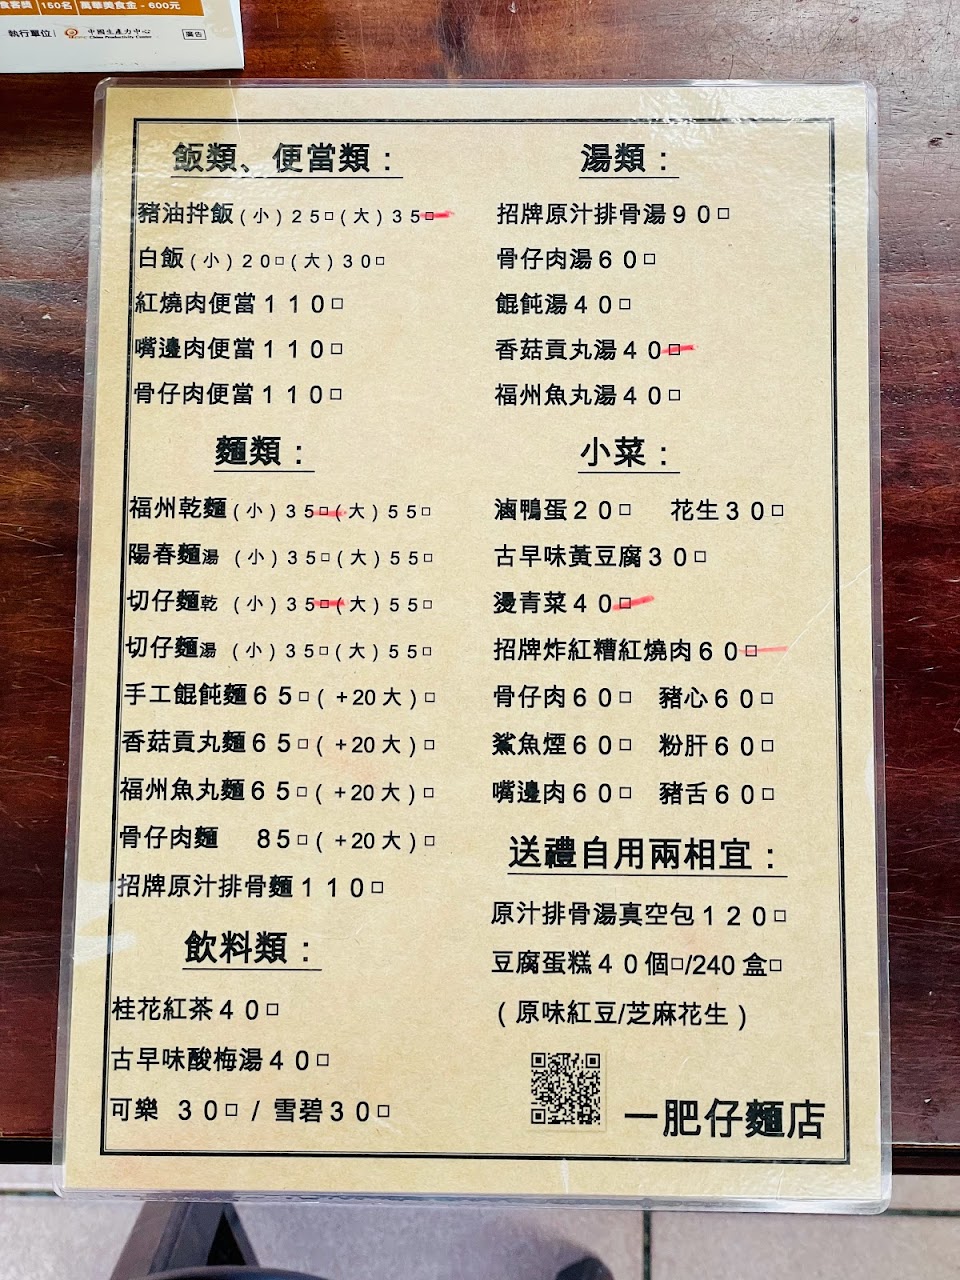 食客獎｜160名｜萬華美食金 - 600元
執行單位｜ 中國生產力中心
China Productivity Center
廣告
飯類、便當類：
豬油拌飯(小)25□(大)35□
白飯(小)20□(大)30□
紅燒肉便當110□
嘴邊肉便當110□
骨仔肉便當110□
麵類：
福州乾麵(小)35□(大)55□
陽春麵湯 (小)35□(大)55□
切仔麵乾 (小)35□(大)55□
切仔麵湯 (小)35□(大)55□
手工餛飩麵65□(+20大)□
香菇貢丸麵65□(+20大)□
福州魚丸麵65□(+20大)□
骨仔肉麵 85□(+20大)□
招牌原汁排骨麵110□
飲料類：
桂花紅茶40□
古早味酸梅湯40□
可樂 30□ / 雪碧30□
湯類：
招牌原汁排骨湯90□
骨仔肉湯60□
餛飩湯40□
香菇貢丸湯40□
福州魚丸湯40□
小菜：
滷鴨蛋20□ 花生30□
古早味黃豆腐30□
燙青菜40□
招牌炸紅糟紅燒肉60□
骨仔肉60□ 豬心60□
鯊魚煙60□ 粉肝60□
嘴邊肉60□ 豬舌60□
送禮自用兩相宜：
原汁排骨湯真空包120□
豆腐蛋糕40個□/240盒□
(原味紅豆/芝麻花生)
一肥仔麵店